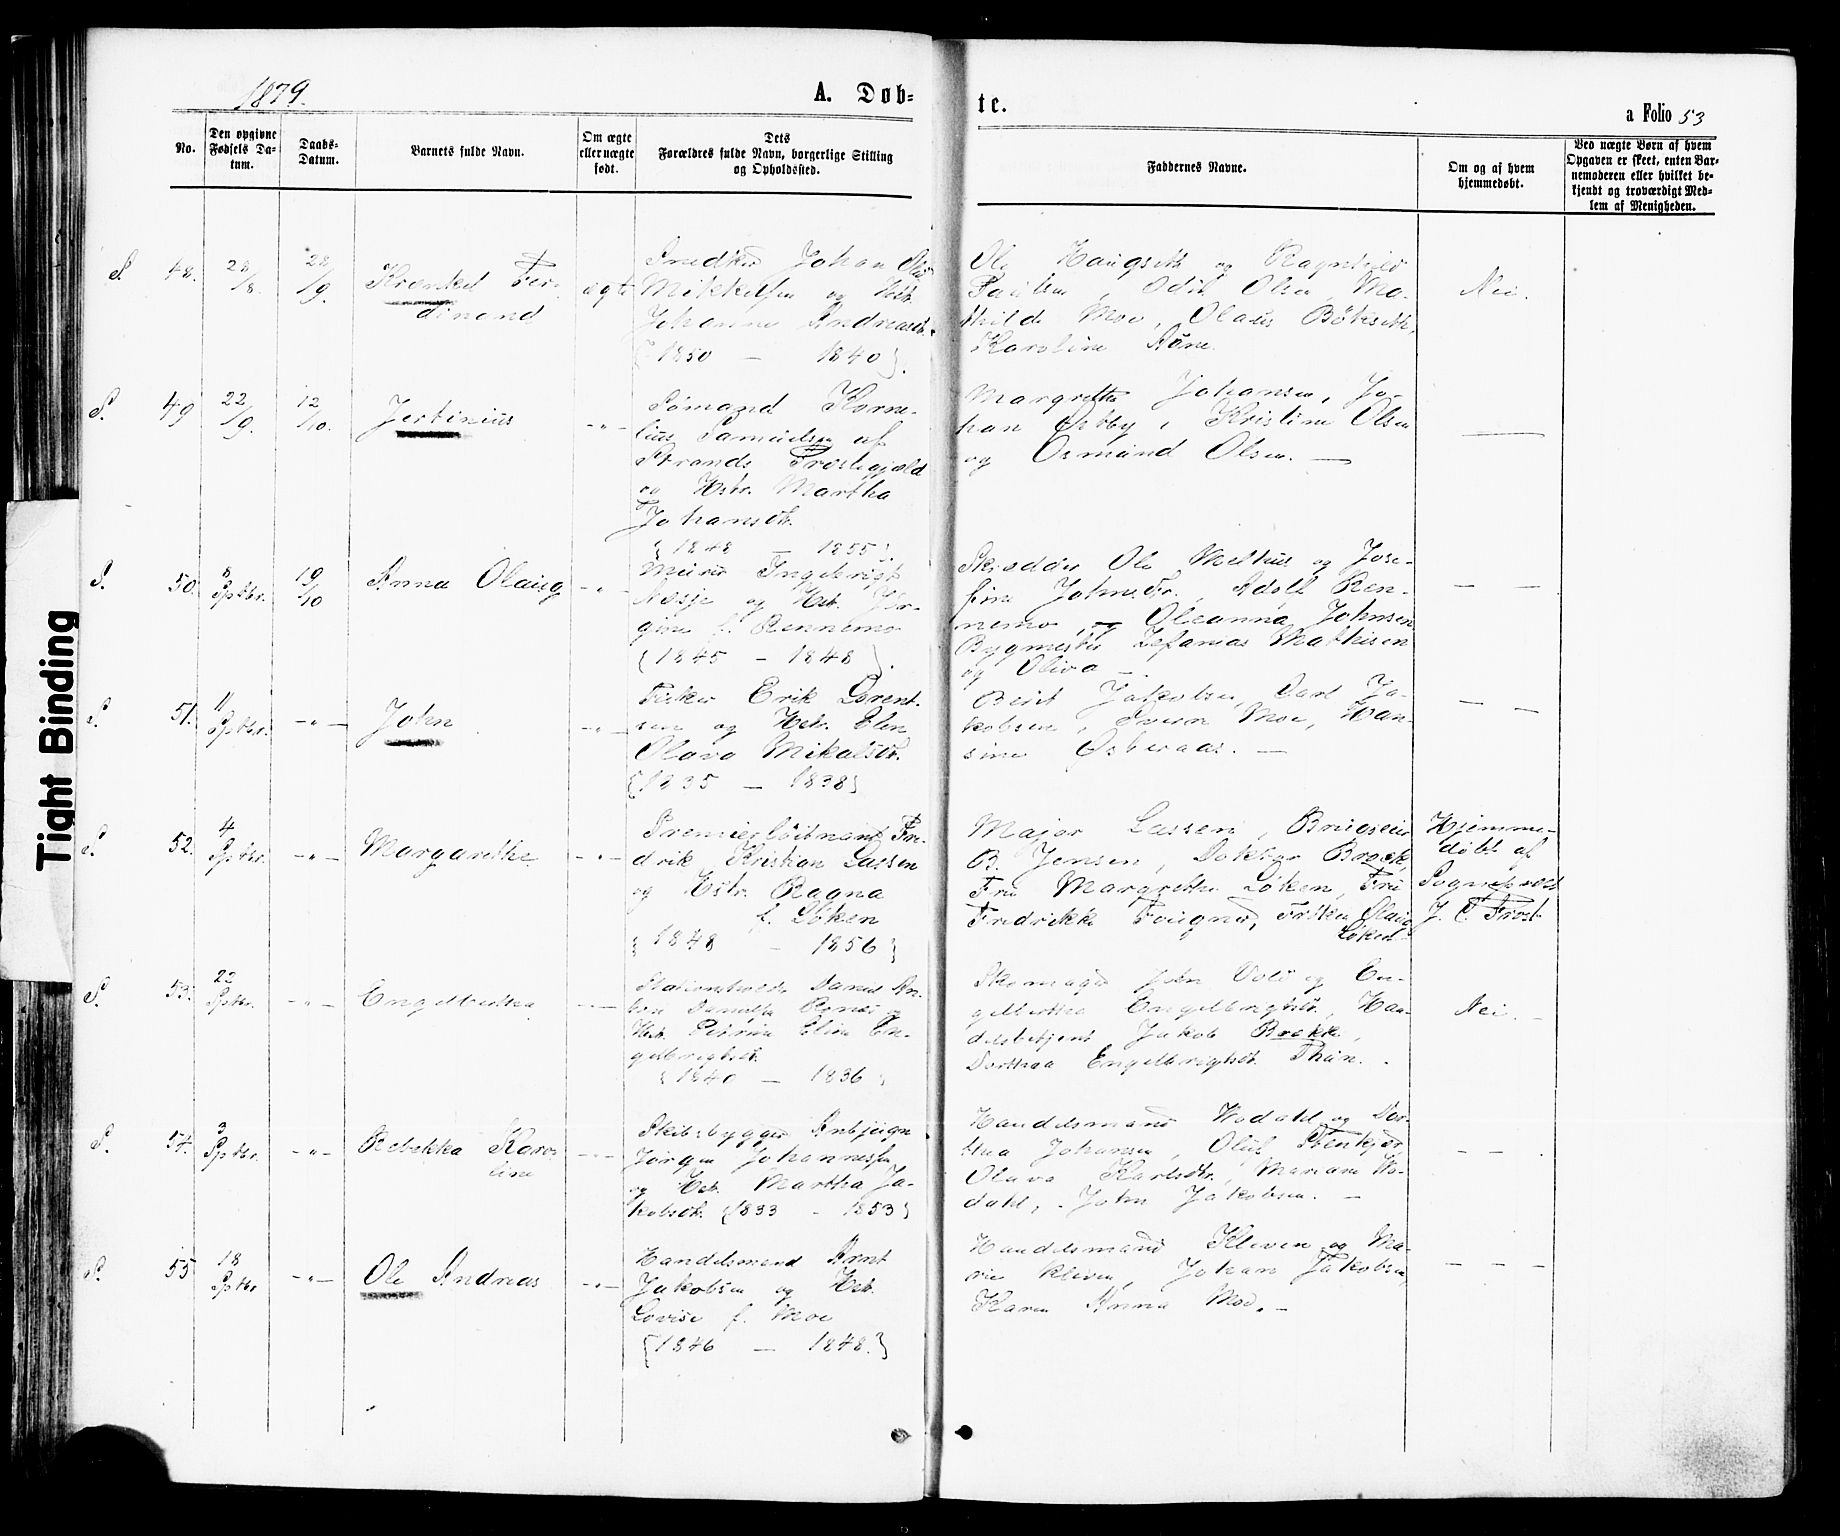 1879.
A. Døb-
te.
a Folio 53
No.
Den opgivne
Fødsels Da-
tum.
Daabs-
Datum.
Barnets fulde Navn.
Om ægte
eller uægte
født.
Dets
Forældres fulde Navn, borgerlige Stilling
og Opholdssted.
Faddernes Navne.
Om og af hvem
hjemmedøbt.
Ved uægte Børn af hvem
Opgaven er skeet, enten Bar-
nemoderen eller hvilket be-
kjendt og troværdigt Med-
lem af Menigheden.
S. 48. 28/8. 28/9. Fer-
dinand
ægte
Snedker Johan
Mikkelsen og Hstr.
Johanne Andreasdtr.
{1850 — 1840}.
Ole Haugseth og Ragnhild
Paulsen, Odil Olsen, Ma-
thilde Moe, Olaus Bökseth,
Karoline Aune.
Nei.
S. 49 22/9. 12/10. Jertinius
-"-
Sømand Korne-
lius Samuelsen af
Strands Præstegjæld
og Hstr. Martha
Johansdtr.
{1848 — 1855}.
Margrethe Johansen, Jo-
han Østby, Kristine Olsen
og Osmund Olsen. —
—
S. 50. 8 Sptbr. 19/10 Anna Olaug
-"-
Murer Ingebrigt
Næsje og Hstr. Jør-
gine f. Rennemo
{1845 — 1848}.
Skrædder Ole Melhus og Jose-
fine Johnsdtr., Adolf Ren-
nemo, og Oleanna Johnsen
Bygmester Zefanias Mathisen
og Oliva —
— —
S. 51. 11 Sptbr. -"- John
-"-
Fisker Erik Lorent-
sen og Hstr. Elen
Olava Mikalsdtr.
{1835 — 1838}
Berit Jakobsen, Carl Ja-
kobsen, Sverre Moe, Han-
sine Østeraas. —
— —
S. 52. 4 Sptbr. -"- Margarethe
-"-
Premierløitnant Fre-
drik Kristian Lassen
og Hstr. Ragna
f. Løken
{1848 — 1856}
Major Lassen, Brugseier
B. Jensen, Doktor Brock,
Fru Margrethe Løken, Fru
Fredrikke Fougner, Frøken Olaug
Løken —
Hjemme-
døbt af
Sognepræst
J. C. Frost
S. 53. 22 Sptbr. -"- Engelbertha
-"-
Daniel An-
ton Danielsen og
Hstr. Petrina Elina En-
gelbrigtsdtr.
{1840 — 1836}
Skomager John Vold og En-
gelbertha Engelbrigtsdtr., Han-
delsbetjent Jakob Brekke,
Dorthea Engelbrigtsdtr. Thun.
Nei. —
S. 54. 3 Sptbr. -"- Rebekka Karo-
line
-"-
Skibsbygger Anbjørgn
Jørgen Johannessen
og Hstr. Martha Ja-
kobsdtr. {1833 - 1853}
Handelsmand Hodahl og Dor-
thea Johansen, Oluf Stenkjær,
Olava Karlsdtr., Mariane Ho-
dahl, John Jakobsen. —
— —
S. 55 18 Sptbr -"- Ole Andreas
-"-
Handelsmand Arnt
Jakobsen og Hstr.
Lovise f. Moe
{1846 — 1848.}
Handelsmand Kleven og Ma-
rie Kleven, Johan Jakobsen
Karen Anna Moe. —
— — —
Tight Binding